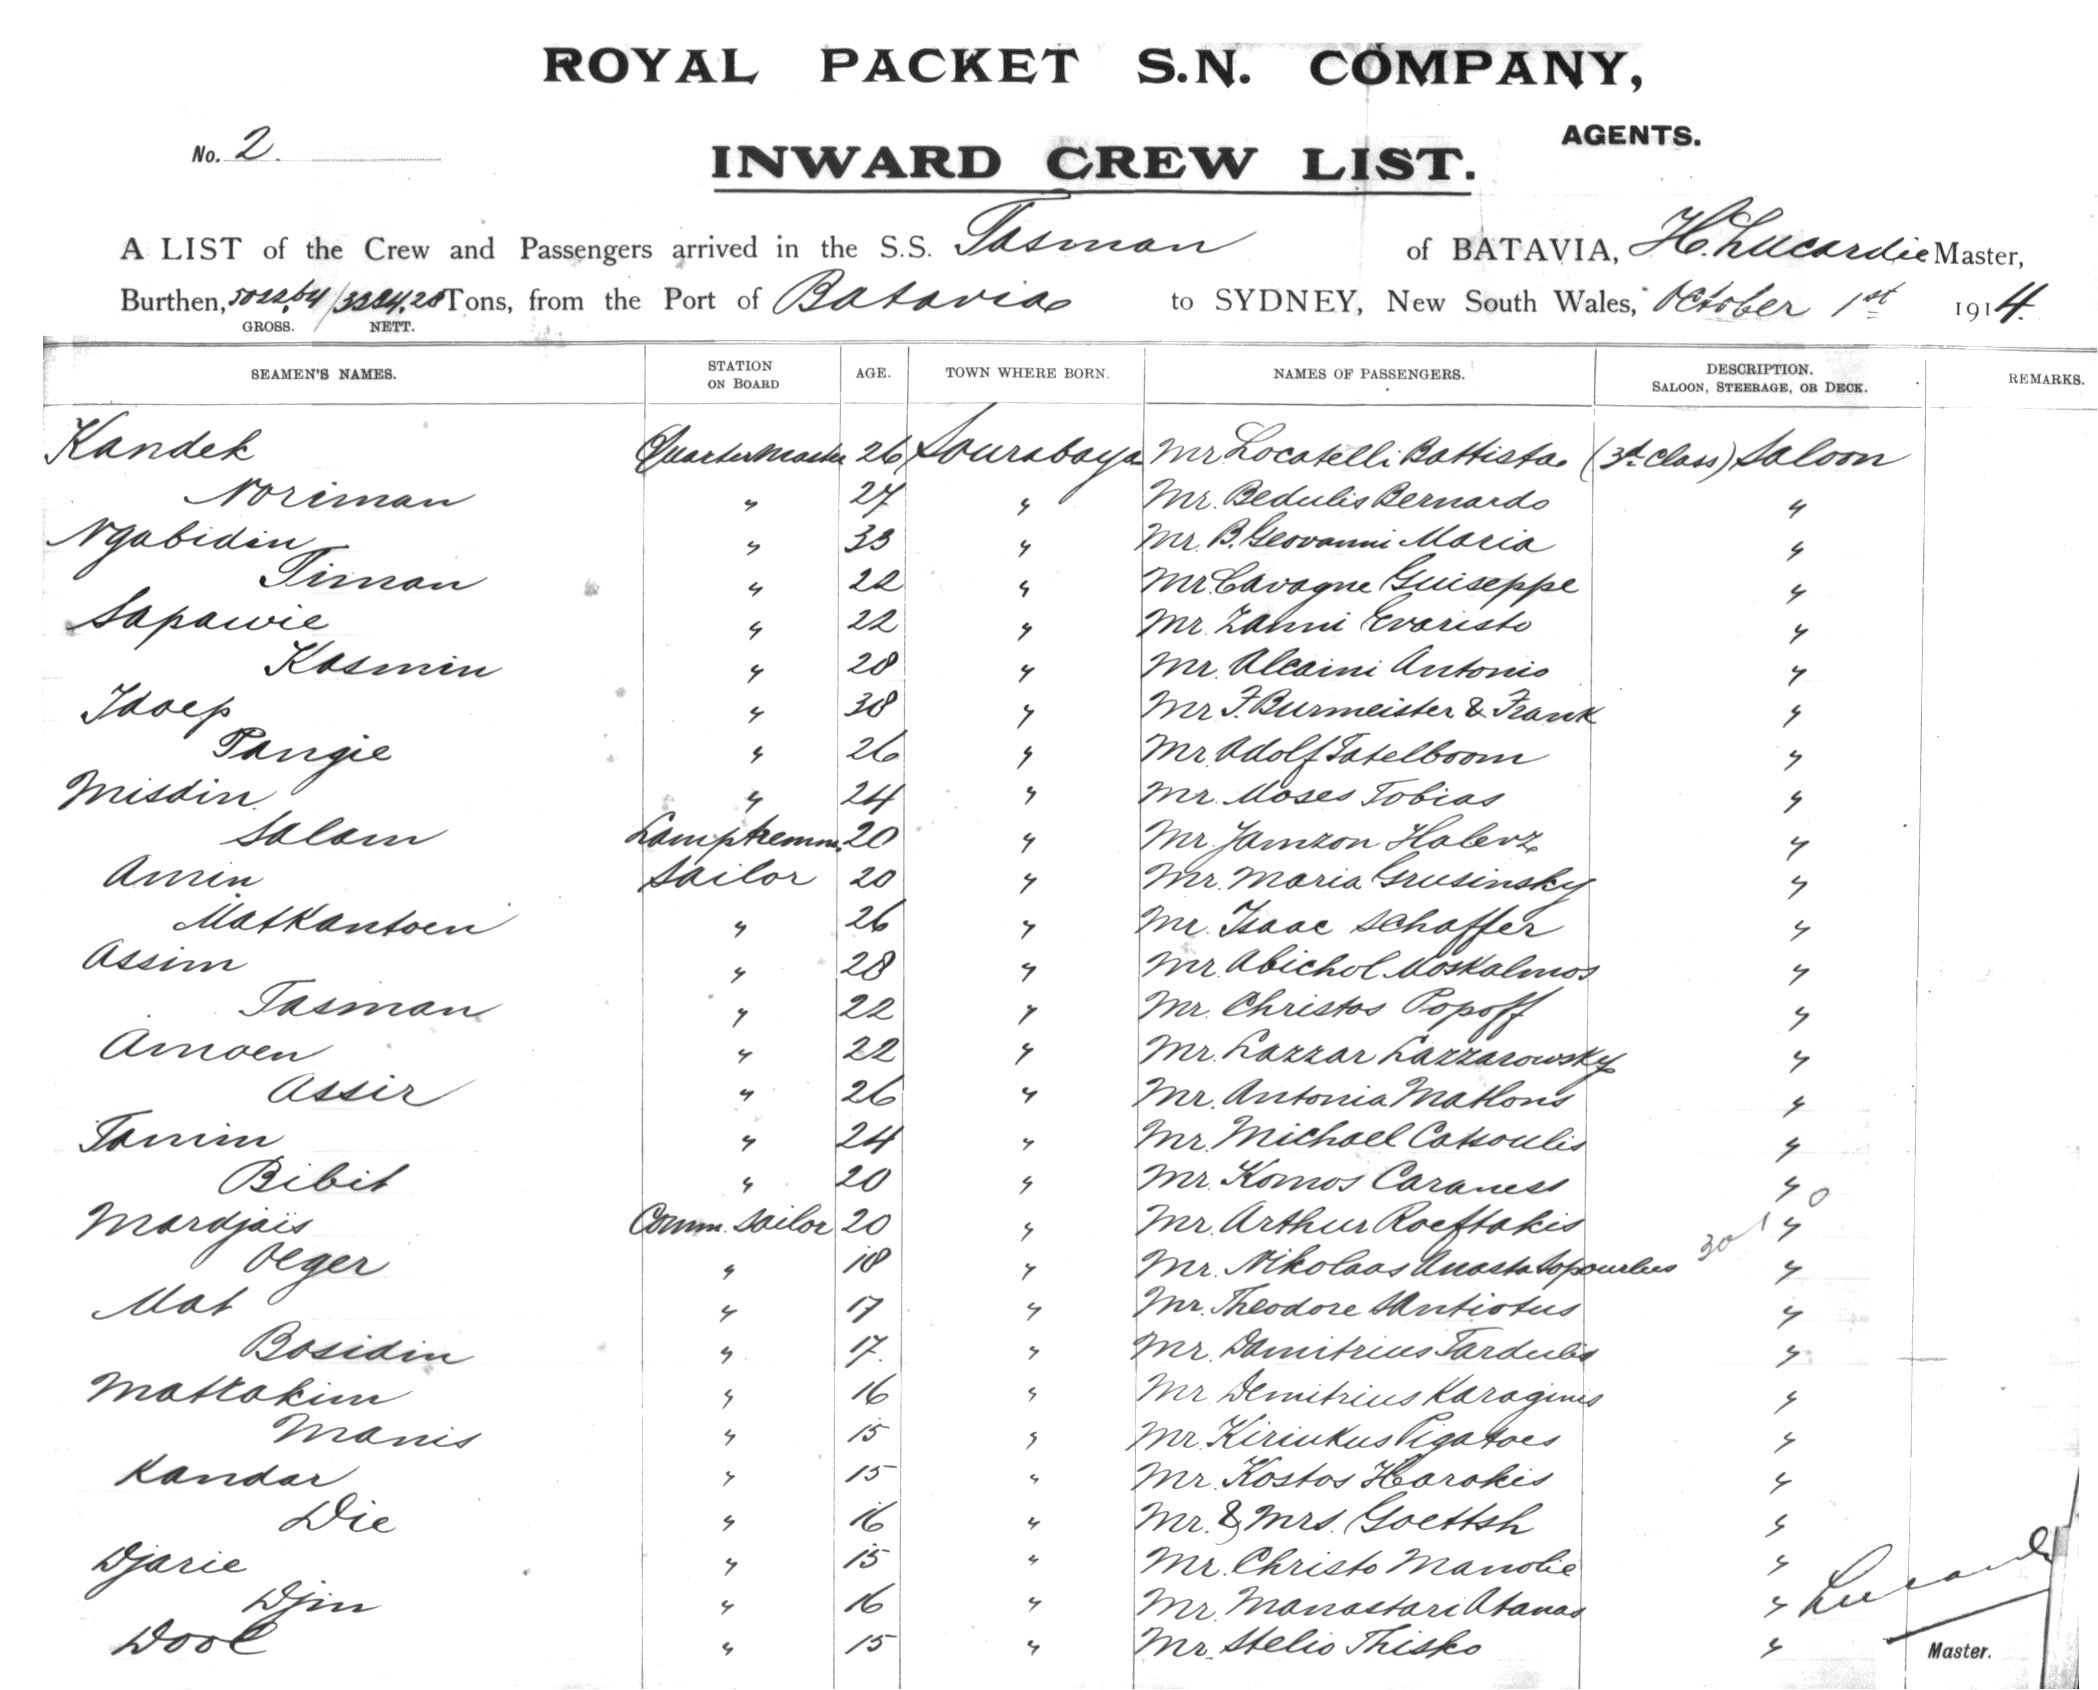 ROYAL PACKET S.N. COMPANY,
AGENTS.
No. 2.
INWARD CREW LIST.
A LIST of the Crew and Passengers arrived in the S.S. Tasman of BATAVIA, H. Lucardie Master,
Burthen, 5022,64/3224,28 Tons, from the Port of Batavia to SYDNEY, New South Wales, October 1st 1914.
GROSS. NETT.
SEAMEN'S NAMES. STATION ON BOARD AGE. TOWN WHERE BORN. NAMES OF PASSENGERS. DESCRIPTION. SALOON, STEERAGE, OR DECK. REMARKS.
Kandek Quartermaster 26 Sourabaya Mr. Locatelli Battista (3d. Class) Saloon
Noriman " 27 " Mr. Bedulis Bernardo "
Ngabidin " 33 " Mr. B. Geovanni Maria "
Timan " 22 " Mr. Cavagne Guiseppe "
Sapawie " 22 " Mr. Zanni Evaristo "
Kasmin " 28 " Mr. Alcaini Antonio "
Idoep " 38 " Mr F. Burmeister & Frank "
Pangie " 26 " Mr. Adolf Tatelboom "
Misdin " 24 " Mr. Moses Tobias "
Salam 20 " Mr. Jamzon "
Amin Sailor 20 " Mr. Maria Grusinsky "
Matkantoen " 26 " Mr. Isaac Schaffer "
Assim " 28 " Mr. Abichol Moskalmos "
Tasman " 22 " Mr. Christos Popoff "
Amoen " 22 " Mr. Lazzar Lazzarowsky "
Assir " 26 " Mr. Antonia Matlons "
Tamim " 24 " Mr. Michael Catsoulis "
Bibit " 20 " Mr. Komos Caraness "
Mardjais Comm. Sailor 20 " Mr. Arthur Roeftakis "
Oeger " 18 " Mr. Nikolaas 30 "
Mat " 17 " Mr. Theodore Santiotus "
Bosidin " 17. " Mr. Damitrius Tardulis "
Mattakim " 16 " Mr Demitrius Karaginis "
Manis " 15 " Mr. Kiriukus Pigatoes "
Kandar " 15 " Mr. Kostos Harakis "
Die " 16 " Mr. & Mrs. Goettsh "
Djarie " 15 " Mr. Christo Manolie "
Djin " 16 " Mr. Manastari Atanas " Lucardie
Dool " 15 " Mr. Stelio Thisko " Master.